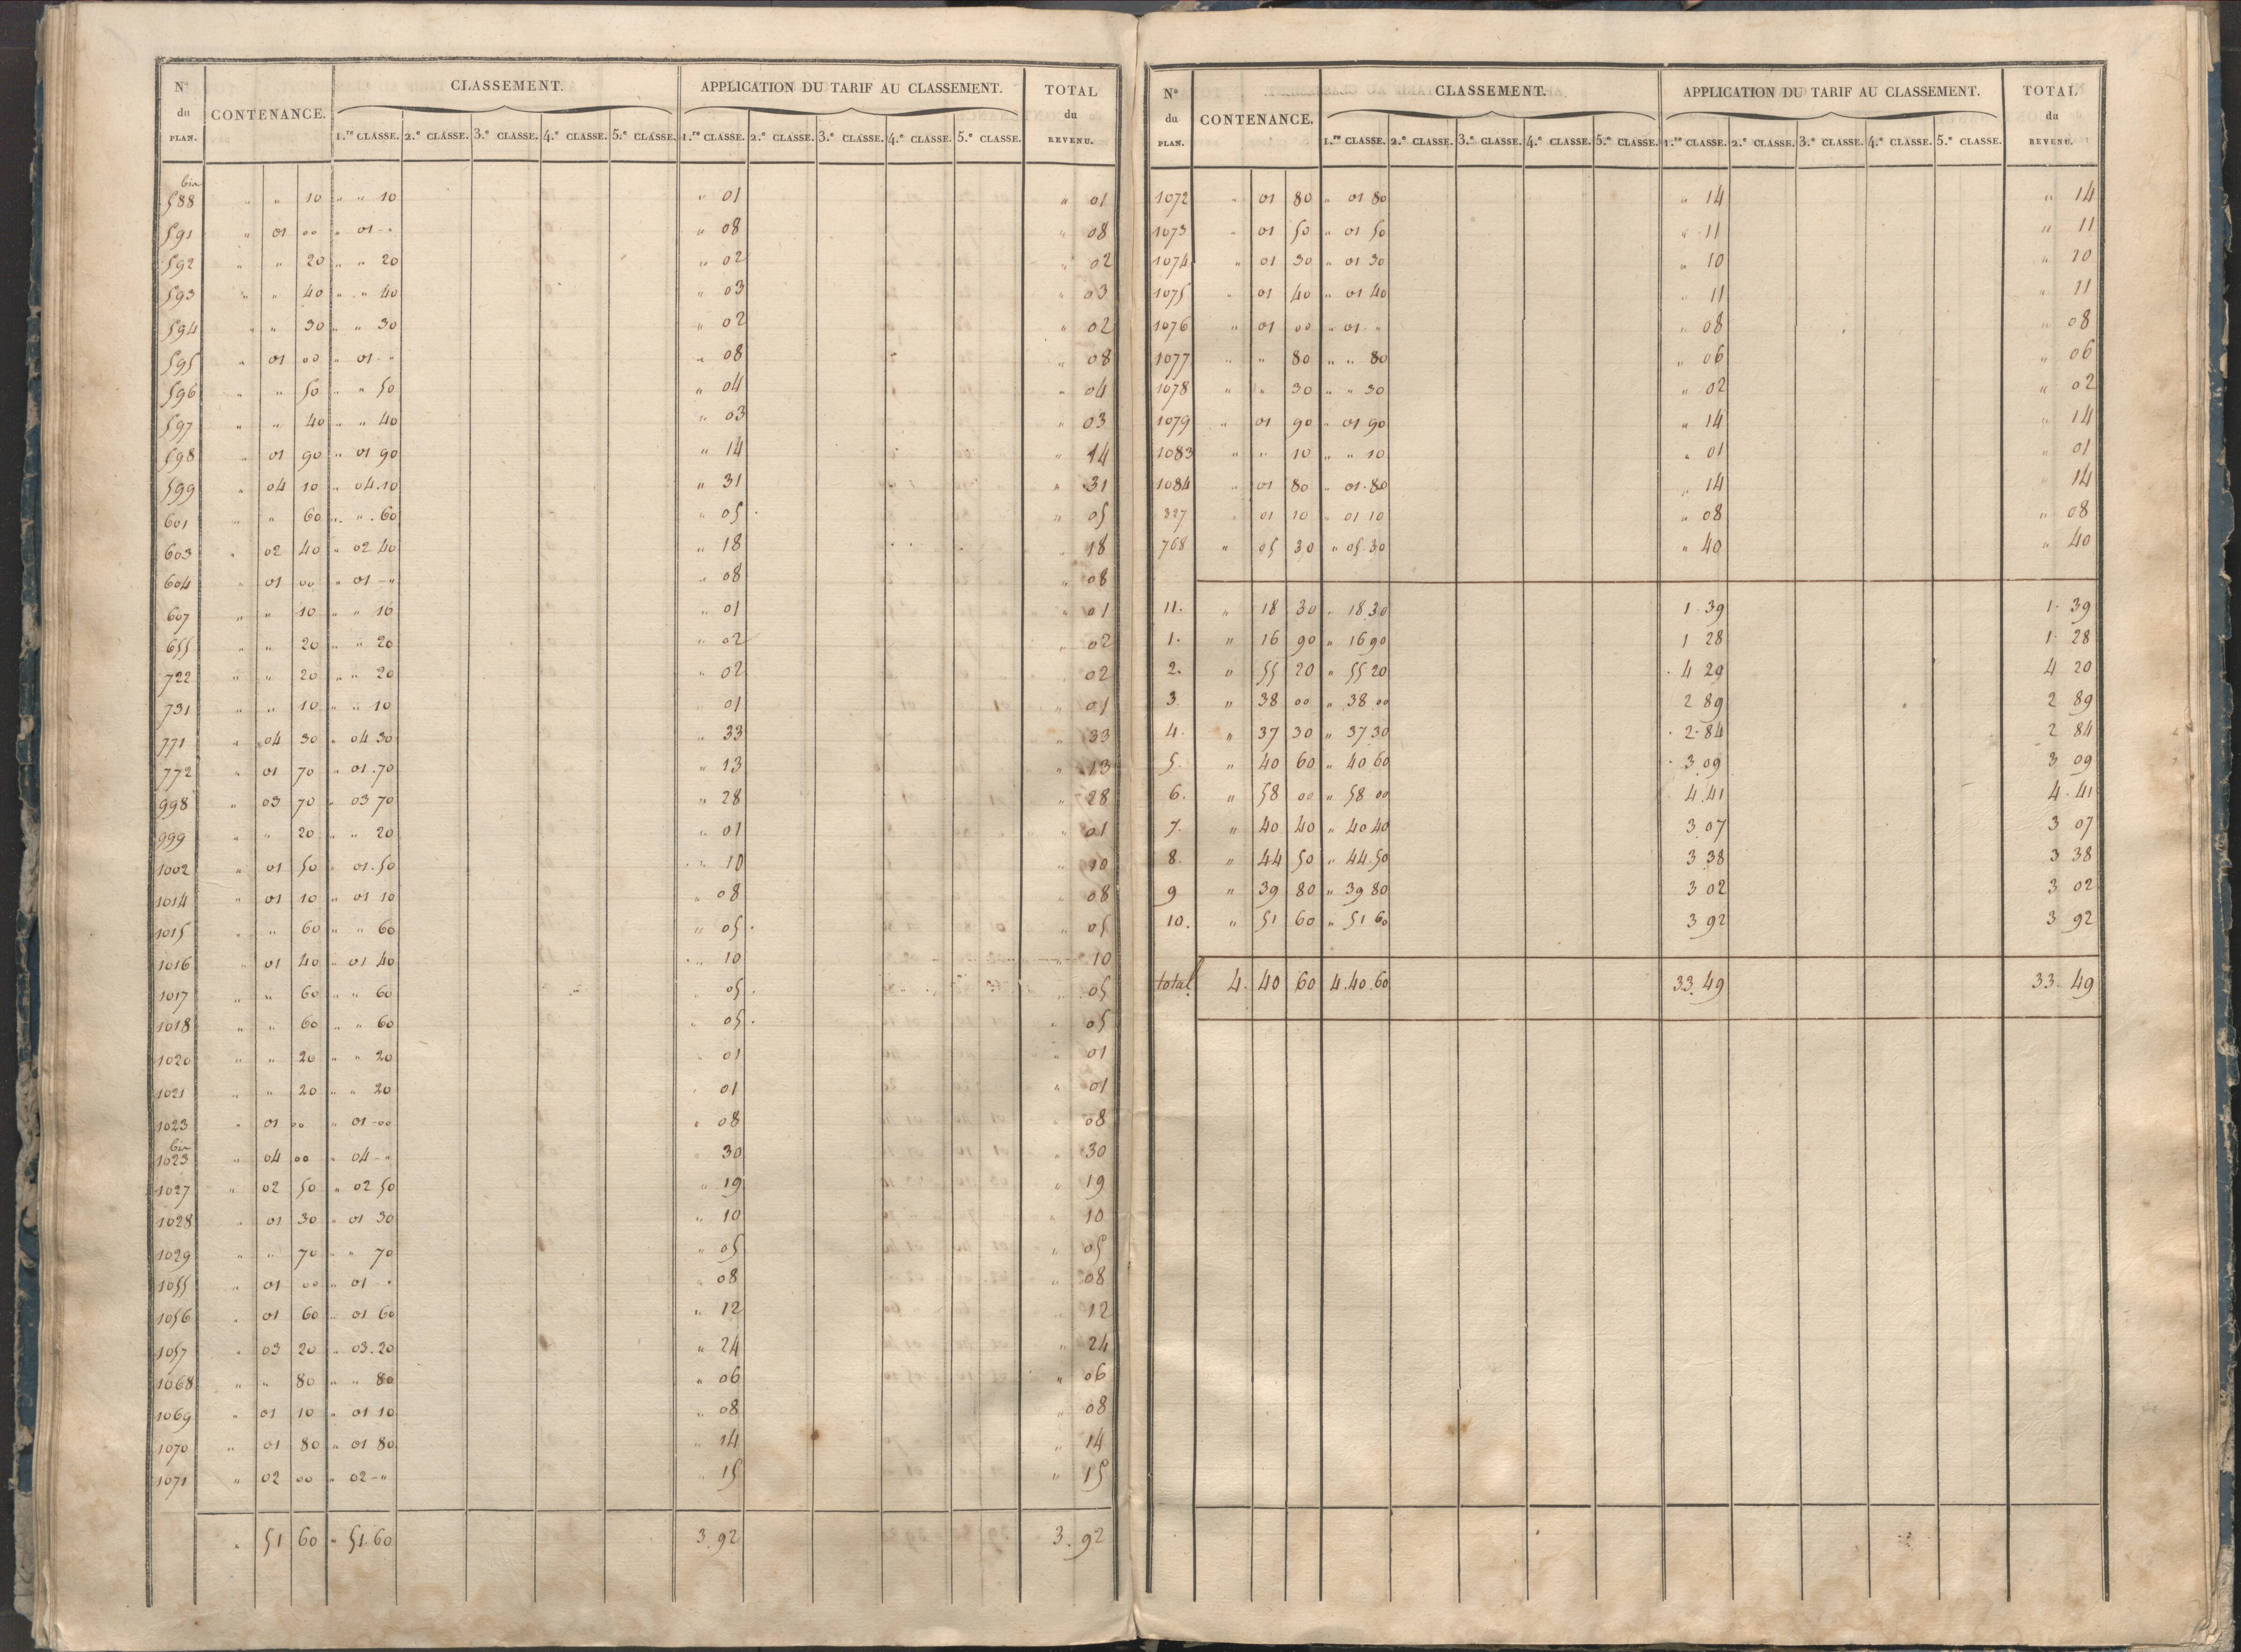 N° du PLAN. CONTENANCE. CLASSEMENT. APPLICATION DU TARIF AU CLASSEMENT. TOTAL du REVENU.
1.re CLASSE. 2.e CLASSE. 3.e CLASSE. 4.e CLASSE. 5.e CLASSE. 1.re CLASSE. 2.e CLASSE. 3.e CLASSE. 4.e CLASSE. 5.e CLASSE.
bis
588 " " 10 " " 10 " 01 " 01
591 " 01 00 " 01 - " " 08 " 08
592 " " 20 " " 20 " 02 " 02
593 " " 40 " " 40 " 03 " 03
594 " " 30 " " 30 " 02 " 02
595 " 01 00 " 01 - " " 08 " 08
596 " " 50 " " 50 " 04 " 04
597 " " 40 " " 40 " 03 " 03
598 " 01 90 " 01 90 " 14 " 14
599 " 04 10 " 04.10 " 31 " 31
601 " " 60 " " . 60 " 05 . " 05
603 " 02 40 " 02 40 " 18 " 18
604 " 01 00 " 01 - " " 08 " 08
607 " " 10 " " 10 " 01 " 01
655 " " 20 " " 20 " 02 " 02
722 " " 20 " " 20 " 02 " 02
731 " " 10 " " 10 " 01 " 01
771 " 04 30 " 04 30 " 33 " 33
772 " 01 70 " 01.70 " 13 " 13
998 " 03 70 " 03 70 " 28 " 28
999 " " 20 " " 20 " 01 " 01
1002 " 01 50 " 01.50 " 10 " 10
1014 " 01 10 " 01 10 " 08 " 08
1015 " " 60 " " 60 " 05 . " 05
1016 " 01 40 " 01 40 " 10 " 10
1017 " " 60 " " 60 " 05 . " 05
1018 " " 60 " " 60 " 05 . " 05
1020 " " 20 " " 20 " 01 " 01
1021 " " 20 " " 20 " 01 " 01
1023 " 01 00 " 01 - 00 " 08 " 08
bis
1023 " 04 00 " 04 - " " 30 " 30
1027 " 02 50 " 02 50 " 19 " 19
1028 " 01 30 " 01 30 " 10 " 10
1029 " " 70 " " 70 " 05 " 05
1055 " 01 00 " 01 - " " 08 " 08
1056 " 01 60 " 01 60 " 12 " 12
1057 " 03 20 " 03.20 " 24 " 24
1068 " " 80 " " 80 " 06 " 06
1069 " 01 10 " 01 10 " 08 " 08
1070 " 01 80 " 01 80 " 14 " 14
1071 " 02 00 " 02 - " " 15 " 15
" 51 60 " 51.60 3.92 3.92
N° du PLAN. CONTENANCE. CLASSEMENT. APPLICATION DU TARIF AU CLASSEMENT. TOTAL du REVENU.
1.re CLASSE. 2.e CLASSE. 3.e CLASSE. 4.e CLASSE. 5.e CLASSE. 1.re CLASSE. 2.e CLASSE. 3.e CLASSE. 4.e CLASSE. 5.e CLASSE.
1072 " 01 80 " 01 80 " 14 " 14
1073 " 01 50 " 01 50 " 11 " 11
1074 " 01 30 " 01 30 " 10 " 10
1075 " 01 40 " 01 40 " 11 " 11
1076 " 01 00 " 01 - " " 08 " 08
1077 " " 80 " " 80 " 06 " 06
1078 " " 30 " " 30 " 02 " 02
1079 " 01 90 " 01 90 " 14 " 14
1083 " " 10 " " 10 " 01 " 01
1084 " 01 80 " 01.80 " 14 " 14
327 " 01 10 " 01 10 " 08 " 08
768 " 05 30 " 05.30 " 40 " 40
11. " 18 30 " 18 30 1.39 1.39
1. " 16 90 " 16 90 1 28 1.28
2. " 55 20 " 55 20 4 29 4 20
3. " 38 00 " 38 00 2 89 2 89
4. " 37 30 " 37 30 2.84 2 84
5. " 40 60 " 40 60 3 09 3 09
6. " 58 00 " 58 00 4.41 4.41
7. " 40 40 " 40 40 3 07 3 07
8. " 44 50 " 44.50 3 38 3 38
9 " 39 80 " 39 80 3 02 3 02
10. " 51 60 " 51 60 3 92 3 92
total 4. 40 60 4.40.60 33.49 33.49